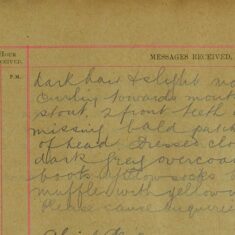 HOUR
RECEIVED.
MESSAGES RECEIVED.
P.M.
dark hair & slight
Curling towards
stout, 2 front teeth
missing bald patch
of head. Dressed
dark grey overcoat
boots yellow socks
muffler with yellow
Please cause enquiries